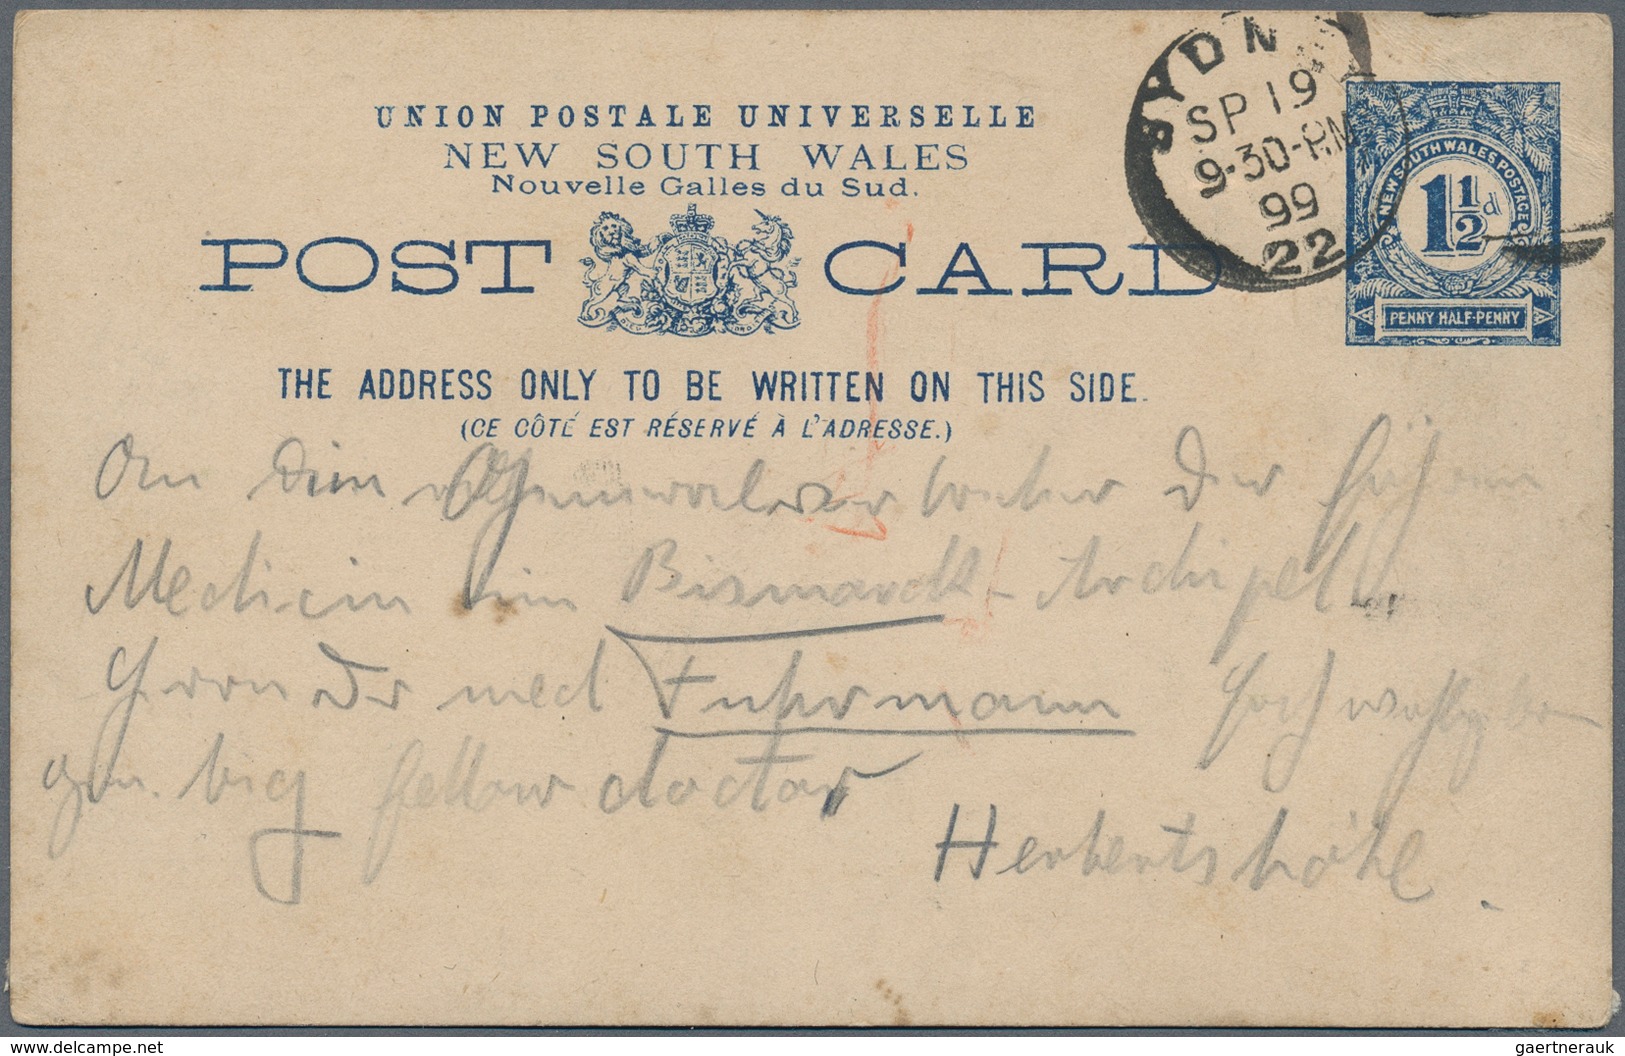 UNION POSTALE UNIVERSELLE
NEW SOUTH WALES
Nouvelle Galles du Sud.
POST CARD
THE ADDRESS ONLY TO BE WRITTEN ON THIS SIDE.
(CE CÔTÉ EST RÉSERVÉ À L'ADRESSE.)
SYDN
SP 19
9-30-PM
99
22
NEW SOUTH WALES POSTAGE
1½d
PENNY HALF-PENNY
An den der
Medicin im Bismarck-Archipel
Herrn Dr med Fuhrmann
big fellow doctor
Herbertshöhe.
www.delcampe.net
gaertnerauk